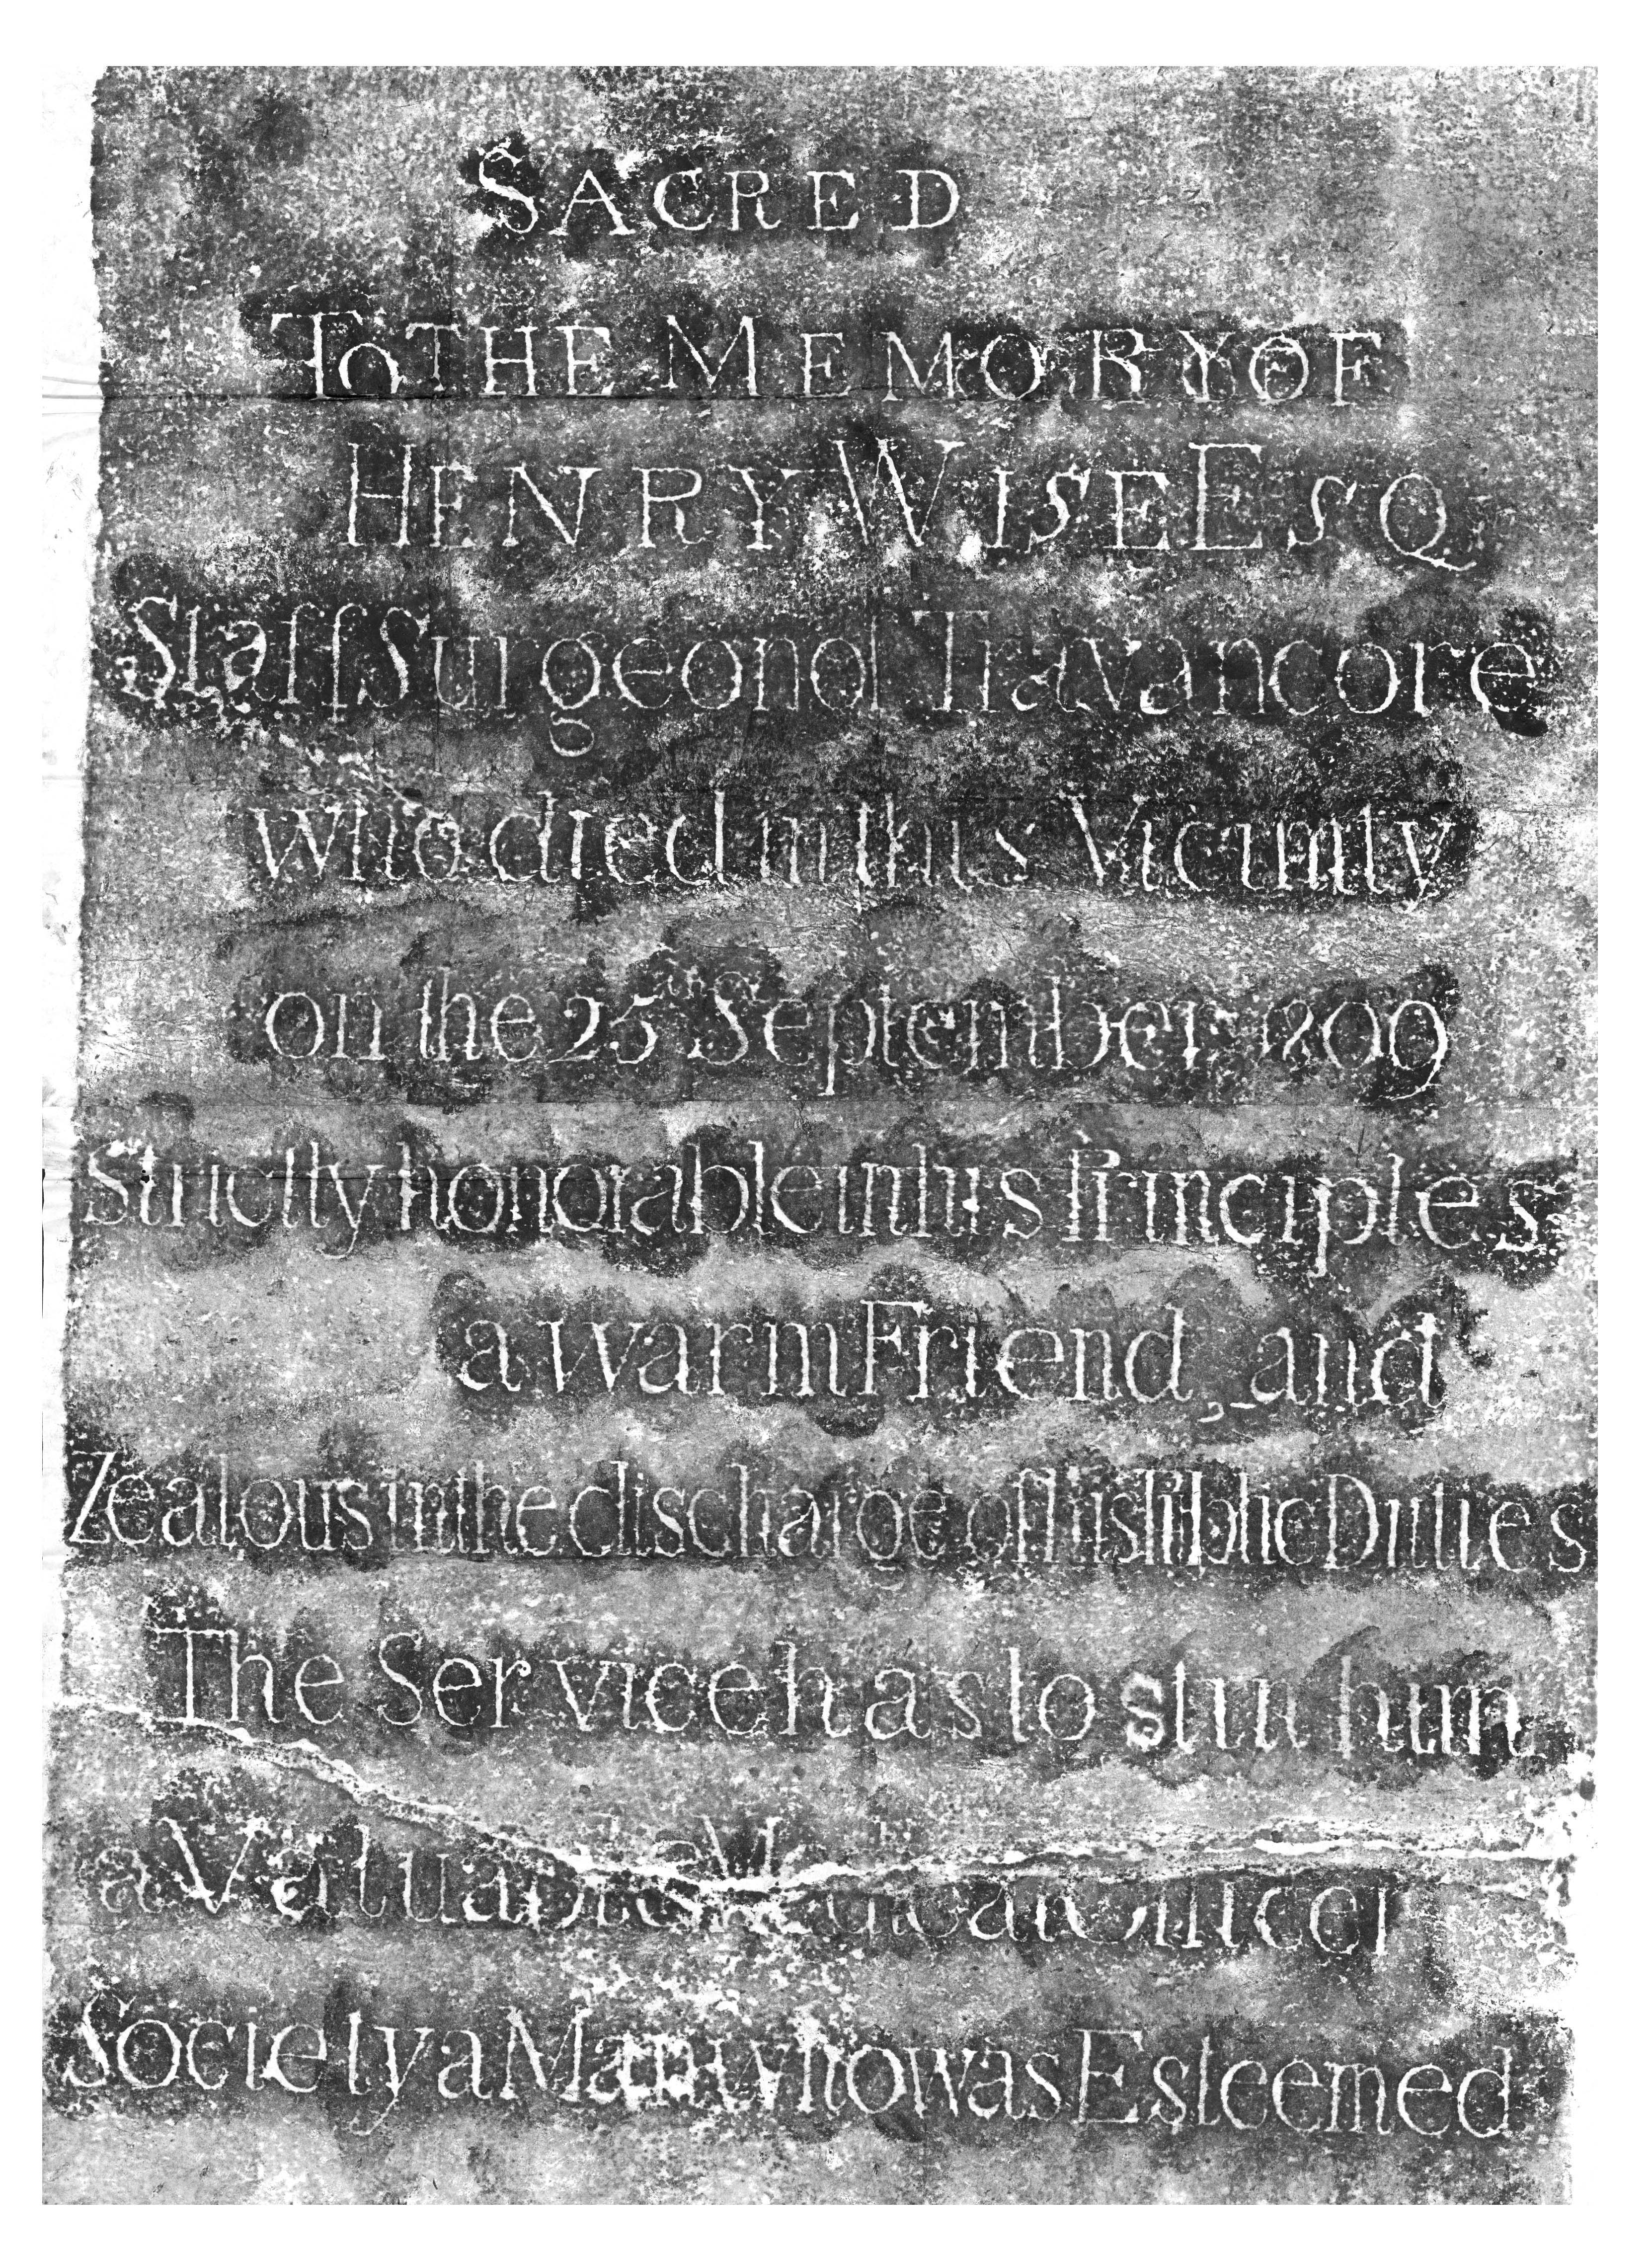 SACRED
To THE MEMORY OF
HENRY WISE ESQ
Staff Surgeon of Travancore
who died in this Vicinity
on the 25th September 1809
Strictly honorable in his Principles
a warm Friend, and
Zealous in the discharge of his Public Duties
The Service has lost in him
a Valuable Medical Officer
Society a Man who was Esteemed